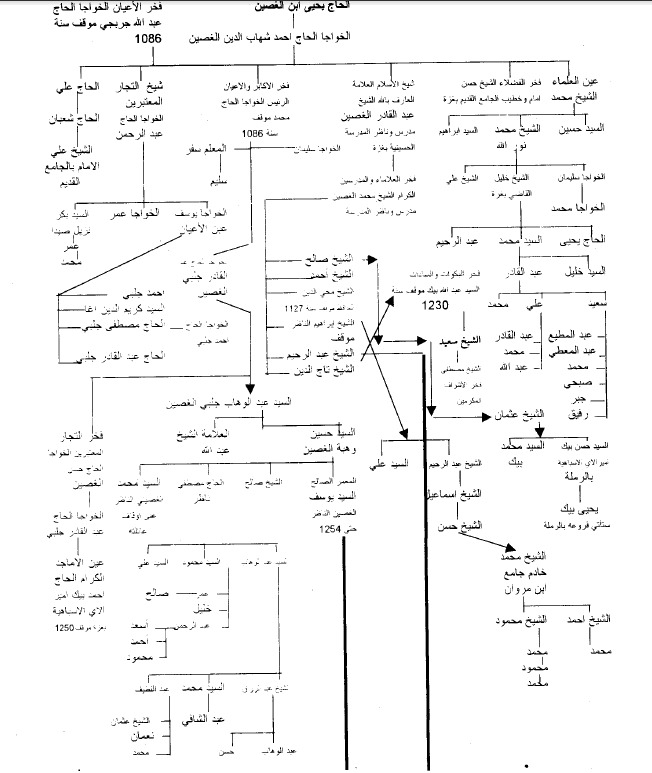 الحاج يحيى ابن الغصين
فخر الأعيان الخواجا الحاج
عبد الله جربجي موقف سنة
1086
الخواجا الحاج احمد شهاب الدين الغصين
عين العلماء
الشيخ محمد
فخر الفضلاء الشيخ حسن
امام وخطيب الجامع القديم بغزة
شيخ الأسلام العلامة
العارف بالله الشيخ
عبد القادر الغصين
مدرس وناظر المدرسة
الحسينية بغزة
فخر الاكابر والاعيان
الرئيس الخواجا الحاج
محمد موقف
سنة 1086
شيخ التجار
المعتبرين
الخواجا الحاج
عبد الرحمن
الحاج علي
الحاج شعبان
الشيخ علي
الامام بالجامع
القديم
السيد حسين
الشيخ محمد
نور الله
السيد ابراهيم
الخواجا سليمان
المعلم سفر
سليم
الخواجا سليمان
الشيخ خليل
القاضي بغزة
الشيخ علي
الخواجا محمد
فخر العلاماء والمدرسين
الكرام الشيخ محمد الغصين
مدرس وناظر المدرسة
الخواجا يوسف
عين الأعيان
الخواجا عمر
السيد بكر
نزيل صيدا
عمر
محمد
الحاج يحيى
السيد محمد
عبد الرحيم
السيد خليل
عبد القادر
فخر
السيد عبد الله بيك موقف سنة
1230
الشيخ صالح
الشيخ أحمد
الشيخ محي الدين
موقف سنة 1127
الشيخ ابراهيم الناظر
موقف
الشيخ عبد الرحيم
الشيخ تاج الدين
القادر جلبي
الغصين
الخواجا الحاج
احمد جلبي
احمد جلبي
السيد كريم الدين اغا
الحاج مصطفى جلبي
الحاج عبد القادر جلبي
سعيد
علي
محمد
عبد المطيع
عبد المعطي
محمد
صبحي
جبر
رفيق
عبد القادر
محمد
عبد الله
الشيخ سعيد
الشيخ مصطفى
فخر الاشراف
المكرمين
السيد عبد الوهاب جلبي الغصين
الشيخ عثمان
السيد حسين
وهبة الغصين
العلامة الشيخ
عبد الله
فخر التجار
المعتبرين الخواجا
الحاج حسن
الغصين
الخواجا الحاج
عبد القادر جلبي
عين الاماجد
الكرام الحاج
احمد بيك امير
الاي الاسباهية
بغزة موقف 1250
السيد حسن بيك
مير الاي الاسباهية
بالرملة
السيد محمد
بيك
يحيى بيك
ستأتي فروعه بالرملة
الشيخ عبد الرحيم
السيد علي
الشيخ اسماعيل
الشيخ حسن
المعمر الصالح
السيد يوسف
الغصين الناظر
حتى 1254
الشيخ صالح
الحاج مصطفى
ناظر
السيد محمد
الغصين الناظر
عائلته
الشيخ محمد
خادم جامع
ابن مروان
الشيخ احمد
الشيخ محمود
محمد
محمد
محمود
محمد
السيد عبد الوهاب
السيد محمود
السيد علي
عمر
خليل
عبد الرحمن
صالح
أسعد
احمد
محمود
السيد محمد
عبد اللطيف
عبد الشافي
الشيخ عثمان
نعمان
محمد
حسن
عبد الوهاب